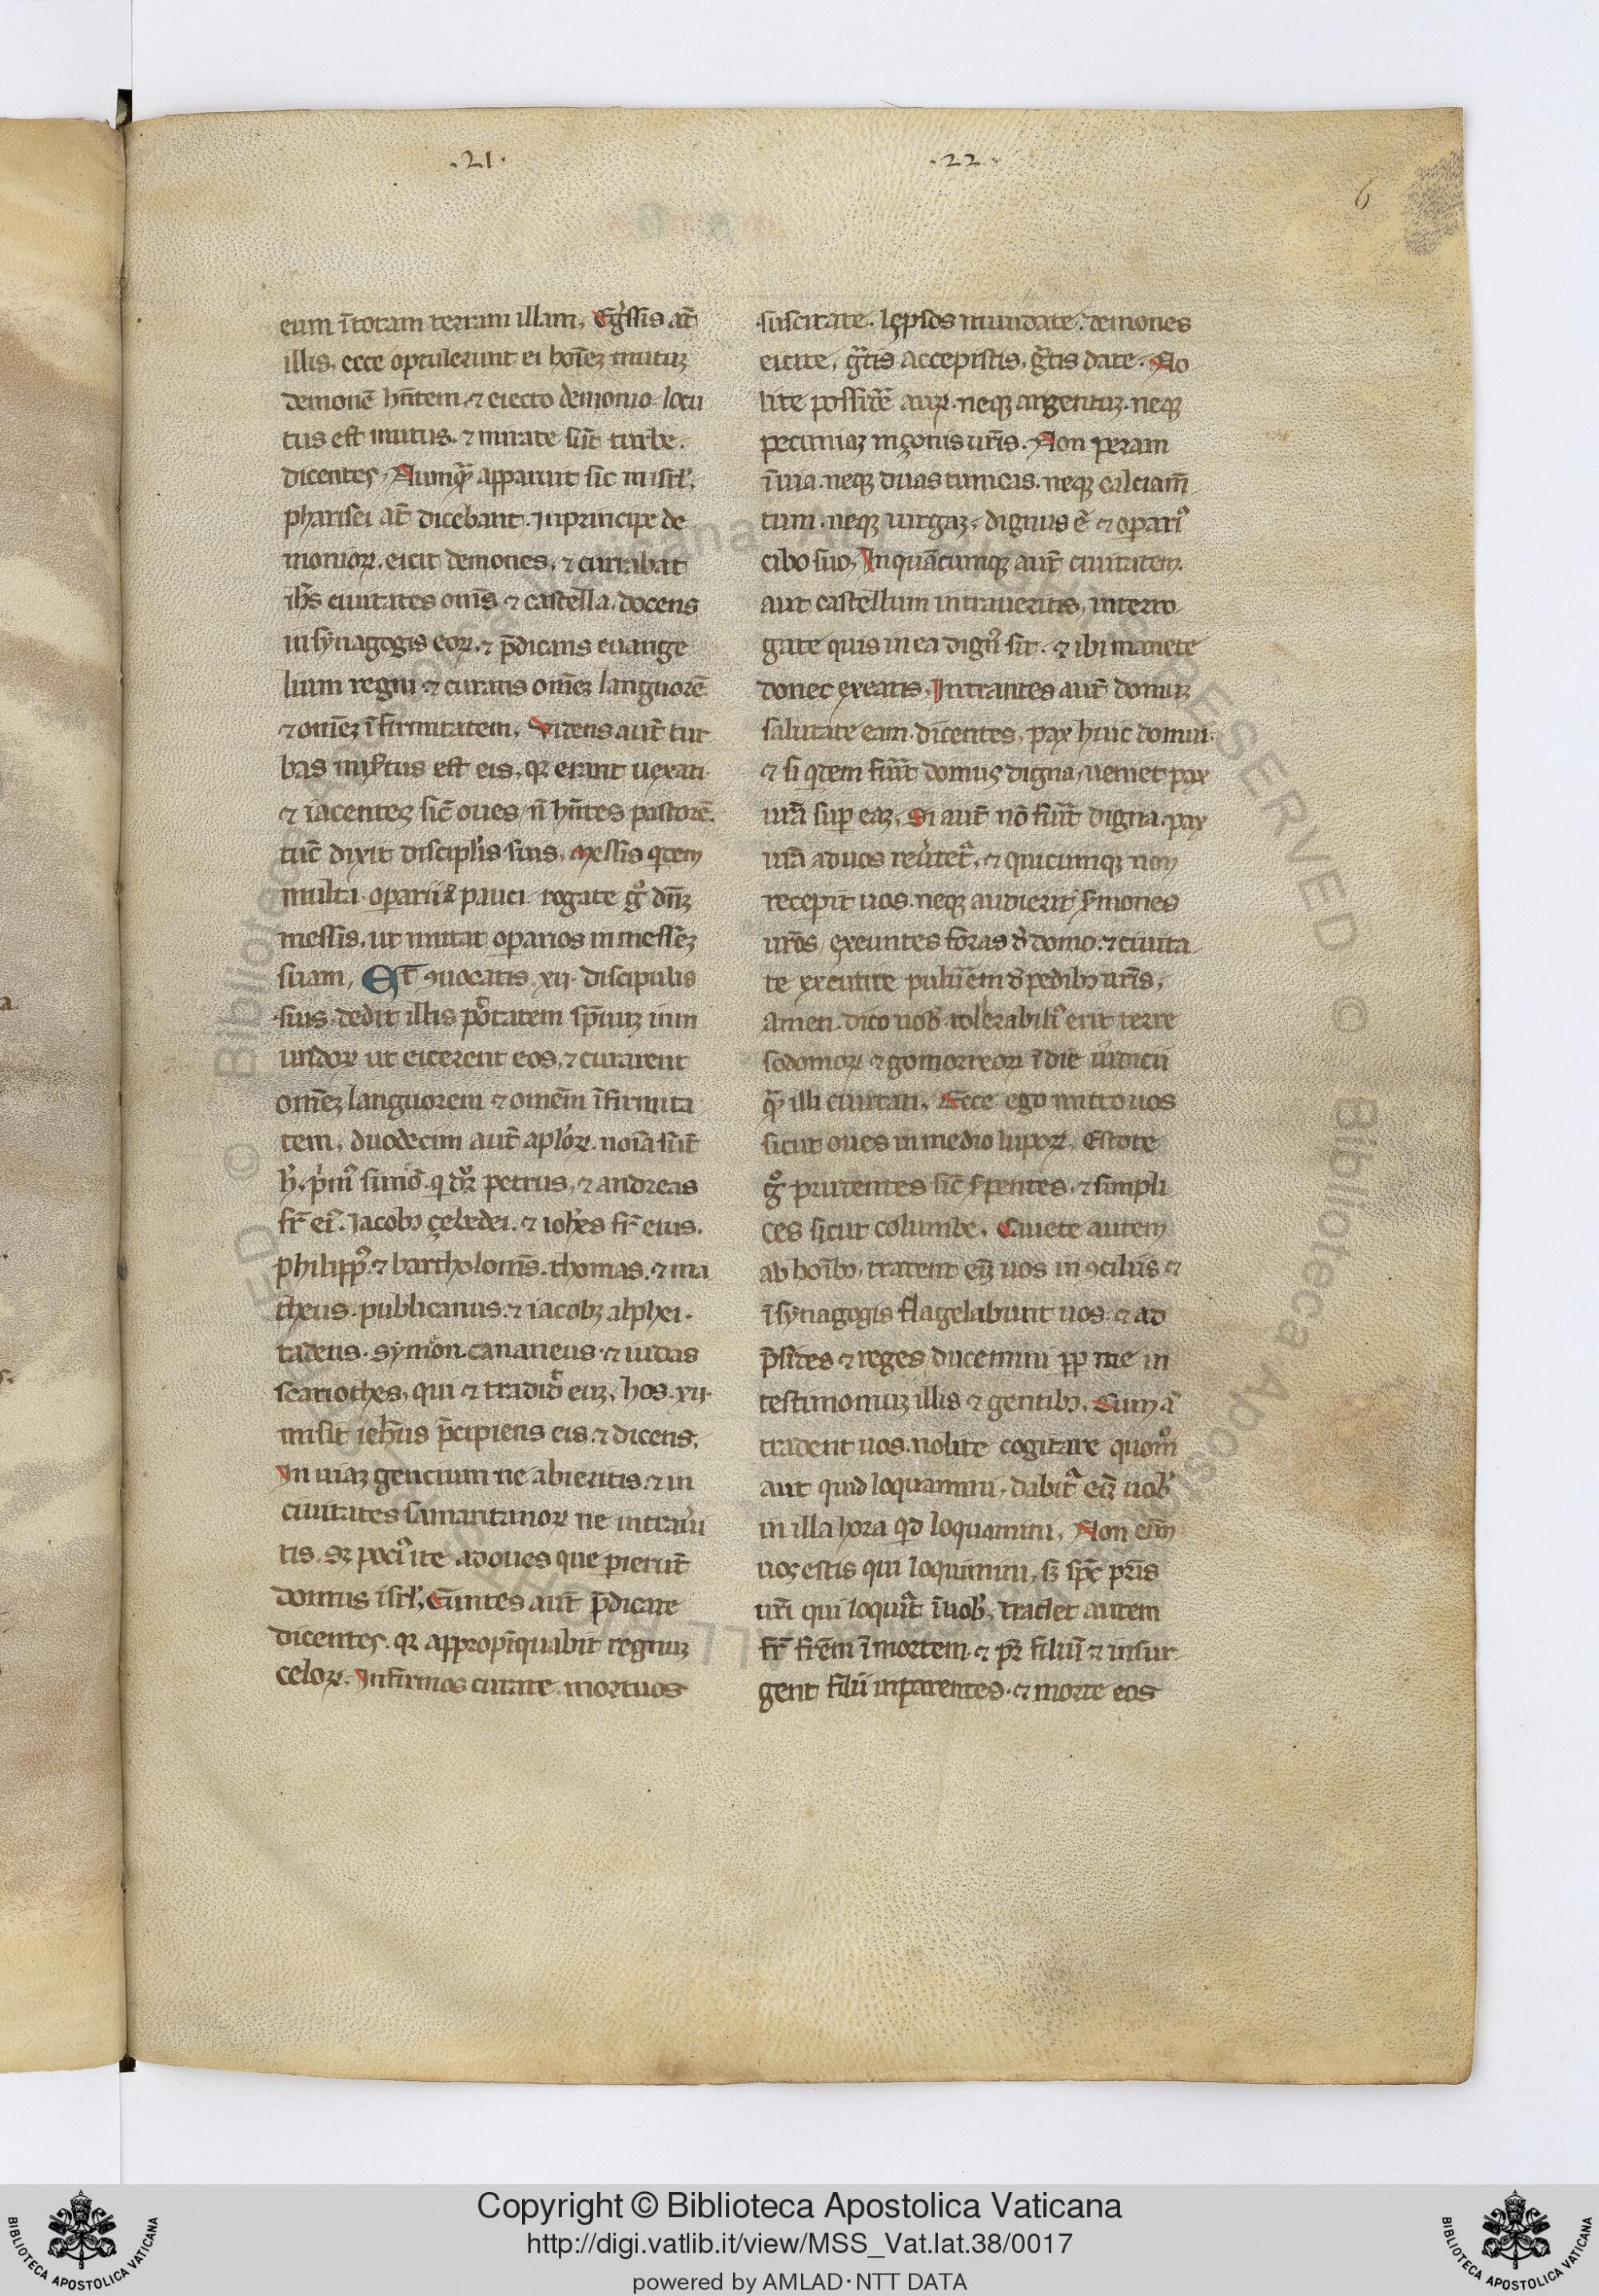 .21.
.22.
6
eum ītotam terram illam. Egͥssis aūt
illis. ecce optulerunt ei hoīeꝫ mutuꝫ
demonē hn̄tem. ⁊ eiecto demonio locu
tus est mutus. ⁊ mirate sūt turbe.
dicentes. Numqᷓ apparuit sic in isrł.
pharisei aūt dicebant. in principe de
monioꝝ. eicit demones. ⁊ curabat
ih̄s ciuitates om̄s ⁊ castella. docens
in synagogis eoꝝ. ⁊ p̄dicans euange
lium regni ⁊ curans om̄eꝫ languorē
⁊ om̄eꝫ īfirmitatem. Videns aūt tur
bas mis̄tus est eis. qꝛ erant uexati
⁊ iacentes sic̄ oues n̄ hn̄tes pastorē.
tūc dixit discipłis suis. Messis qͥdem
multa. oꝑarii pauci. rogate gͦ dn̄ꝫ
messis. ut mittat oꝑarios in messeꝫ
suam. Et ꝯuocatis .xii. discipulis
suis. dedit illis potꝰtatem sp̄iuꝫ inm
undoꝝ ut eicerent eos. ⁊ curarent
om̄eꝫ languorem ⁊ omēm īfirmita
tem. duodecim aūt apłoꝝ. noīa sūt
h̄. pͥmꝰ simō. q dꝛ̄ petrus. ⁊ andreas
fr̄ eiꝰ. Iacobꝰ çebedei. ⁊ ioħes fr̄ eius.
philippꝰ. ⁊ bartholom̄s. thomas. ⁊ ma
theus. publicanus. ⁊ iacobꝫ alphei.
tadeus. symon cananeus. ⁊ iudas
scariothes. qui ⁊ tradidᷓ euꝫ. hos .xii.
misit ieħus p̄cipiens eis. ⁊ dicens.
In uiaꝫ gencium ne abieritis. ⁊ in
ciuitates samaritanoꝝ ne intraūi
tis. sꝫ pociꝰ ite ad oues que ꝑierūt
domus isrł. Euntes aūt p̄dicate
dicentes. qꝛ appropīquabit regnuꝫ
celoꝝ. Infirmos curate. mortuos
suscitate. leprsos mundate. demones
eicite. gᷓtis accepistis. gᷓtis date. No
lite possidēre auꝝ. neqꝫ argentuꝫ. neqꝫ
pecuniaꝫ in çonis ur̄is. Non peram
ī uia. neqꝫ duas tunicas. neqꝫ calciam̄
tum. neqꝫ uirgaꝫ. dignus ē ⁊ oꝑariꝰ
cibo suo. In quācumqꝫ aūt ciuitatem.
aut castellum intraueritis. interro
gate quis in ea dignꝰ sit. ⁊ ibi manete
donec exeatis. Intrantes aūt domuꝫ
salutate eam. dicentes. pax huic domui.
⁊ si qͥdem fūit domus digna. ueniet pax
ur̄a suꝑ eaꝫ. Si aūt nō fūit digna. pax
ur̄a ad uos reūtetᷓ. ⁊ quicumqꝫ non
recepit uos. neqꝫ audierit s̄mones
ur̄os exeuntes foras d̄ domo. ⁊ ciuita
te excutite puluēm d̄ pedibꝰ ur̄is.
amen. dico uob̄. tolerabiliꝰ erit terre
sodomoꝝ ⁊ gomorreoꝝ ī die iudicii
qᷓ illi ciuitati. Ecce ego mitto uos
sicut oues in medio lupoꝝ. Estote
gͦ prudentes sic̄ s̄pentes. ⁊ simpli
ces sicut columbe. Cauete autem
ab hoībꝰ. tradent eīꝫ uos in ꝯciliis ⁊
ī synagogis flagelabunt uos. ⁊ ad
p̄sides ⁊ reges ducemini ꝓp̄ me in
testimoniuꝫ illis ⁊ gentibꝰ. Cum aᷓ
tradent uos. nolite cogitare quomͦ
aut quid loquamini. dabitᷓ eīꝫ uob̄
in illa hora qͩ loquamini. Non eīm
uos estis qui loquimini. sꝫ sp̄c pr̄is
ur̄i qui loquitᷓ ī uob̄. tradet autem
fr̄ fr̄em ī mortem. ⁊ pꝛ̄ filiū ⁊ insur
gent filii in parentes. ⁊ morte eos
Copyright © Biblioteca Apostolica Vaticana
http://digi.vatlib.it/view/MSS_Vat.lat.38/0017
powered by AMLAD·NTT DATA
BIBLIOTECA APOSTOLICA VATICANA
BIBLIOTECA APOSTOLICA VATICANA